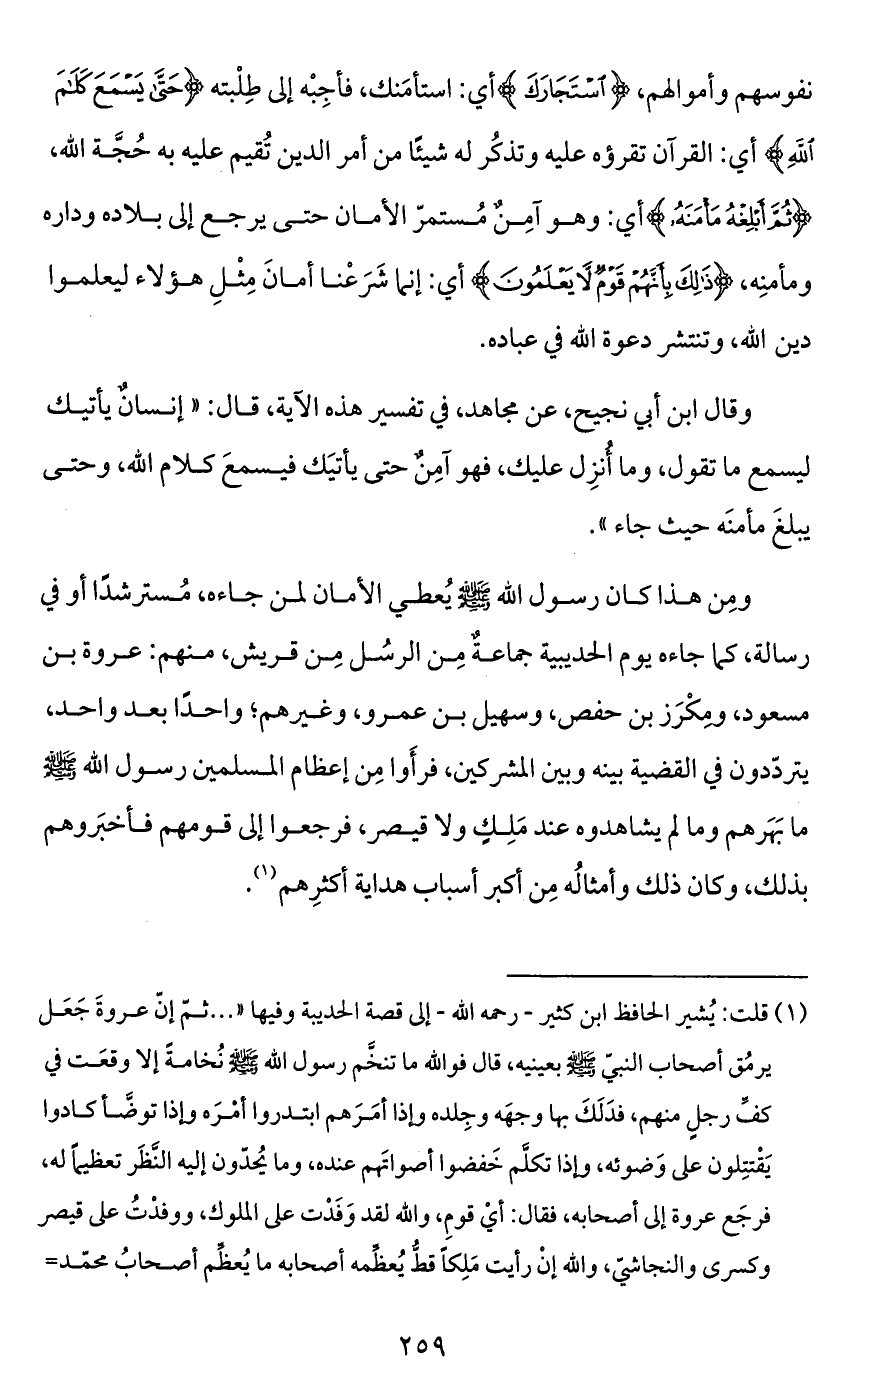 نفوسهم وأموالهم، ﴿ٱسْتَجَارَكَ﴾ أي: استأمَنك، فأجِبْه إلى طِلْبته ﴿حَتَّىٰ يَسْمَعَ كَلَٰمَ
ٱللَّهِ﴾ أي: القرآن تقرؤه عليه وتذكُر له شيئًا من أمر الدين تُقيم عليه به حُجَّة الله،
﴿ثُمَّ أَبْلِغْهُ مَأْمَنَهُۥ﴾ أي: وهو آمِنٌ مُستمرّ الأمان حتى يرجع إلى بلاده وداره
ومأمنِه، ﴿ذَٰلِكَ بِأَنَّهُمْ قَوْمٌ لَّا يَعْلَمُونَ﴾ أي: إنما شَرَعْنا أمانَ مِثْلِ هؤلاء ليعلموا
دين الله، وتنتشر دعوة الله في عباده.
وقال ابن أبي نجيح، عن مجاهد، في تفسير هذه الآية، قال: « إنسانٌ يأتيك
ليسمع ما تقول، وما أُنزِل عليك، فهو آمِنٌ حتى يأتيَك فيسمعَ كلام الله، وحتى
يبلغَ مأمنَه حيث جاء ».
ومِن هذا كان رسول الله ﷺ يُعطي الأمان لمن جاءه، مُسترشدًا أو في
رسالة، كما جاءه يوم الحديبية جماعةٌ مِن الرسُل مِن قريش، منهم: عروة بن
مسعود، ومِكْرَز بن حفص، وسهيل بن عمرو، وغيرهم؛ واحدًا بعد واحد،
يتردّدون في القضية بينه وبين المشركين، فرأَوا مِن إعظام المسلمين رسول الله ﷺ
ما بَهَرهم وما لم يشاهدوه عند مَلِكٍ ولا قيصر، فرجعوا إلى قومهم فأخبَروهم
بذلك، وكان ذلك وأمثالُه مِن أكبر أسباب هداية أكثرِهم(١).
(١) قلت: يُشير الحافظ ابن كثير - رحمه الله - إلى قصة الحديبة وفيها «...ثمّ إنّ عروةَ جَعَل
يرمُق أصحاب النبيّ ﷺ بعينيه، قال فوالله ما تنخَّم رسول الله ﷺ نُخامةً إلا وقعَت في
كفِّ رجلٍ منهم، فدَلَكَ بها وجهَه وجِلده وإذا أمَرَهم ابتدروا أمْرَه وإذا توضَّأ كادوا
يَقْتتِلون على وَضوئه، وإذا تكلَّم خَفضوا أصواتَهم عنده، وما يُحدّون إليه النَّظَر تعظيماً له،
فرجَع عروة إلى أصحابه، فقال: أيْ قومِ، والله لقد وَفَدْت على الملوك، ووفدْتُ على قيصر
وكسرى والنجاشيّ، والله إنْ رأيت مَلِكاً قطُّ يُعظِّمه أصحابه ما يُعظِّم أصحابُ محمّد=
٢٥٩